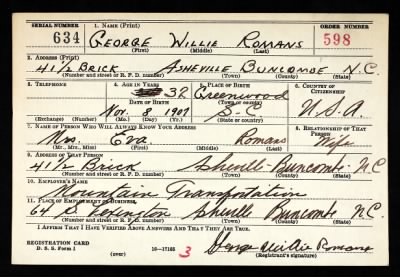 SERIAL NUMBER 1. NAME (Print) ORDER NUMBER
634 GEORGE WILLIE ROMANS 598
(First) (Middle) (Last)
2. ADDRESS (Print)
41½ BRICK ASHEVILLE BUNCOMBE N.C.
(Number and street or R. F. D. number) (Town) (County) (State)
3. TELEPHONE 4. AGE IN YEARS 5. PLACE OF BIRTH 6. COUNTRY OF CITIZENSHIP
32 Greenwood
DATE OF BIRTH (Town or county)
Nov. 8 1907 S-C U.S.A.
(Exchange) (Number) (Mo.) (Day) (Yr.) (State or country)
7. NAME OF PERSON WHO WILL ALWAYS KNOW YOUR ADDRESS 8. RELATIONSHIP OF THAT PERSON
Mrs. Eva Romans Wife
(Mr., Mrs., Miss) (First) (Middle) (Last)
9. ADDRESS OF THAT PERSON
41½ Brick Asheville-Buncombe-N.C
(Number and street or R. F. D. number) (Town) (County) (State)
10. EMPLOYER'S NAME
Mountain Transportation
11. PLACE OF EMPLOYMENT OR BUSINESS
64 S. Lexington Asheville Buncombe N.C.
(Number and street or R. F. D. number) (Town) (County) (State)
I AFFIRM THAT I HAVE VERIFIED ABOVE ANSWERS AND THAT THEY ARE TRUE.
REGISTRATION CARD
D. S. S. Form 1 (over) 16—17105 3 George Willie Romans
(Registrant's signature)